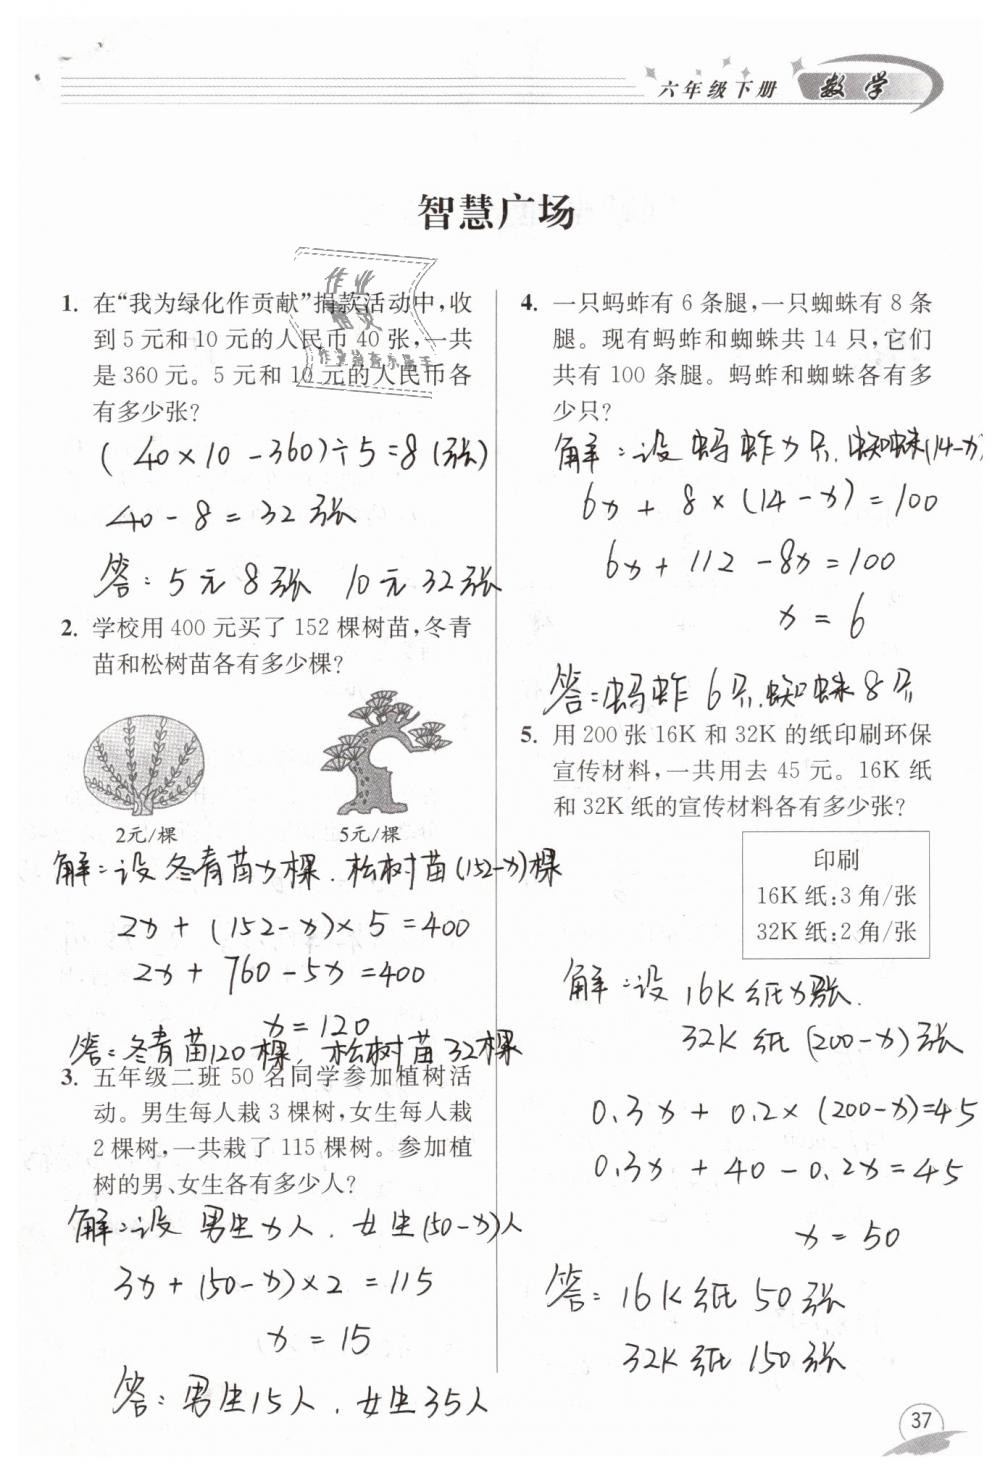 六年级下册 数学
智慧广场
1. 在“我为绿化作贡献”捐款活动中,收
到5元和10元的人民币40张,一共
是360元。5元和10元的人民币各
有多少张?
(40×10-360)÷5=8(张)
40-8=32张
答:5元8张 10元32张
2. 学校用400元买了152棵树苗,冬青
苗和松树苗各有多少棵?
2元/棵 5元/棵
解:设冬青苗x棵.松树苗(152-x)棵
2x+(152-x)×5=400
2x+760-5x=400
x=120
答:冬青苗120棵,松树苗32棵
3. 五年级二班50名同学参加植树活
动。男生每人栽3棵树,女生每人栽
2棵树,一共栽了115棵树。参加植
树的男、女生各有多少人?
解:设男生x人.女生(50-x)人
3x+(50-x)×2=115
x=15
答:男生15人.女生35人
4. 一只蚂蚱有6条腿,一只蜘蛛有8条
腿。现有蚂蚱和蜘蛛共14只,它们
共有100条腿。蚂蚱和蜘蛛各有多
少只?
解:设蚂蚱x只.蜘蛛(14-x)
6x+8×(14-x)=100
6x+112-8x=100
x=6
答:蚂蚱6只.蜘蛛8只
5. 用200张16K和32K的纸印刷环保
宣传材料,一共用去45元。16K纸
和32K纸的宣传材料各有多少张?
印刷
16K纸:3角/张
32K纸:2角/张
解:设16K纸x张.
32K纸(200-x)张
0.3x+0.2×(200-x)=45
0.3x+40-0.2x=45
x=50
答:16K纸50张
32K纸150张
37